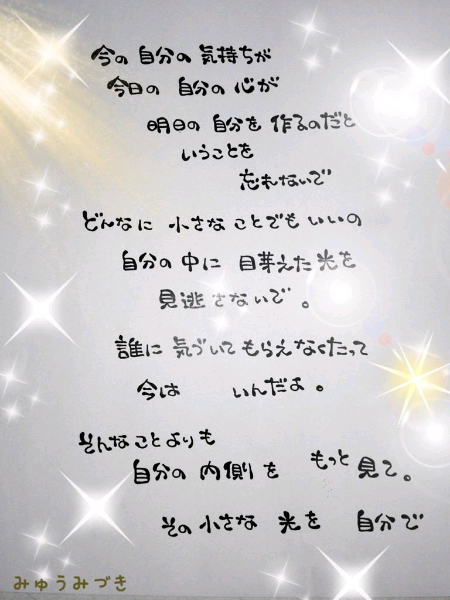 今の 自分の 気持ちが
今日の 自分の 心が
明日の 自分を 作るのだと
いうことを
忘れないで
どんなに 小さな ことでも いいの
自分の 中に 目芽えた 光を
見逃さないで。
誰に 気づいて もらえなくたって
今は いんだよ。
そんなことよりも
自分の 内側を もっと 見て。
その 小さな 光を 自分で
みゅうみづき